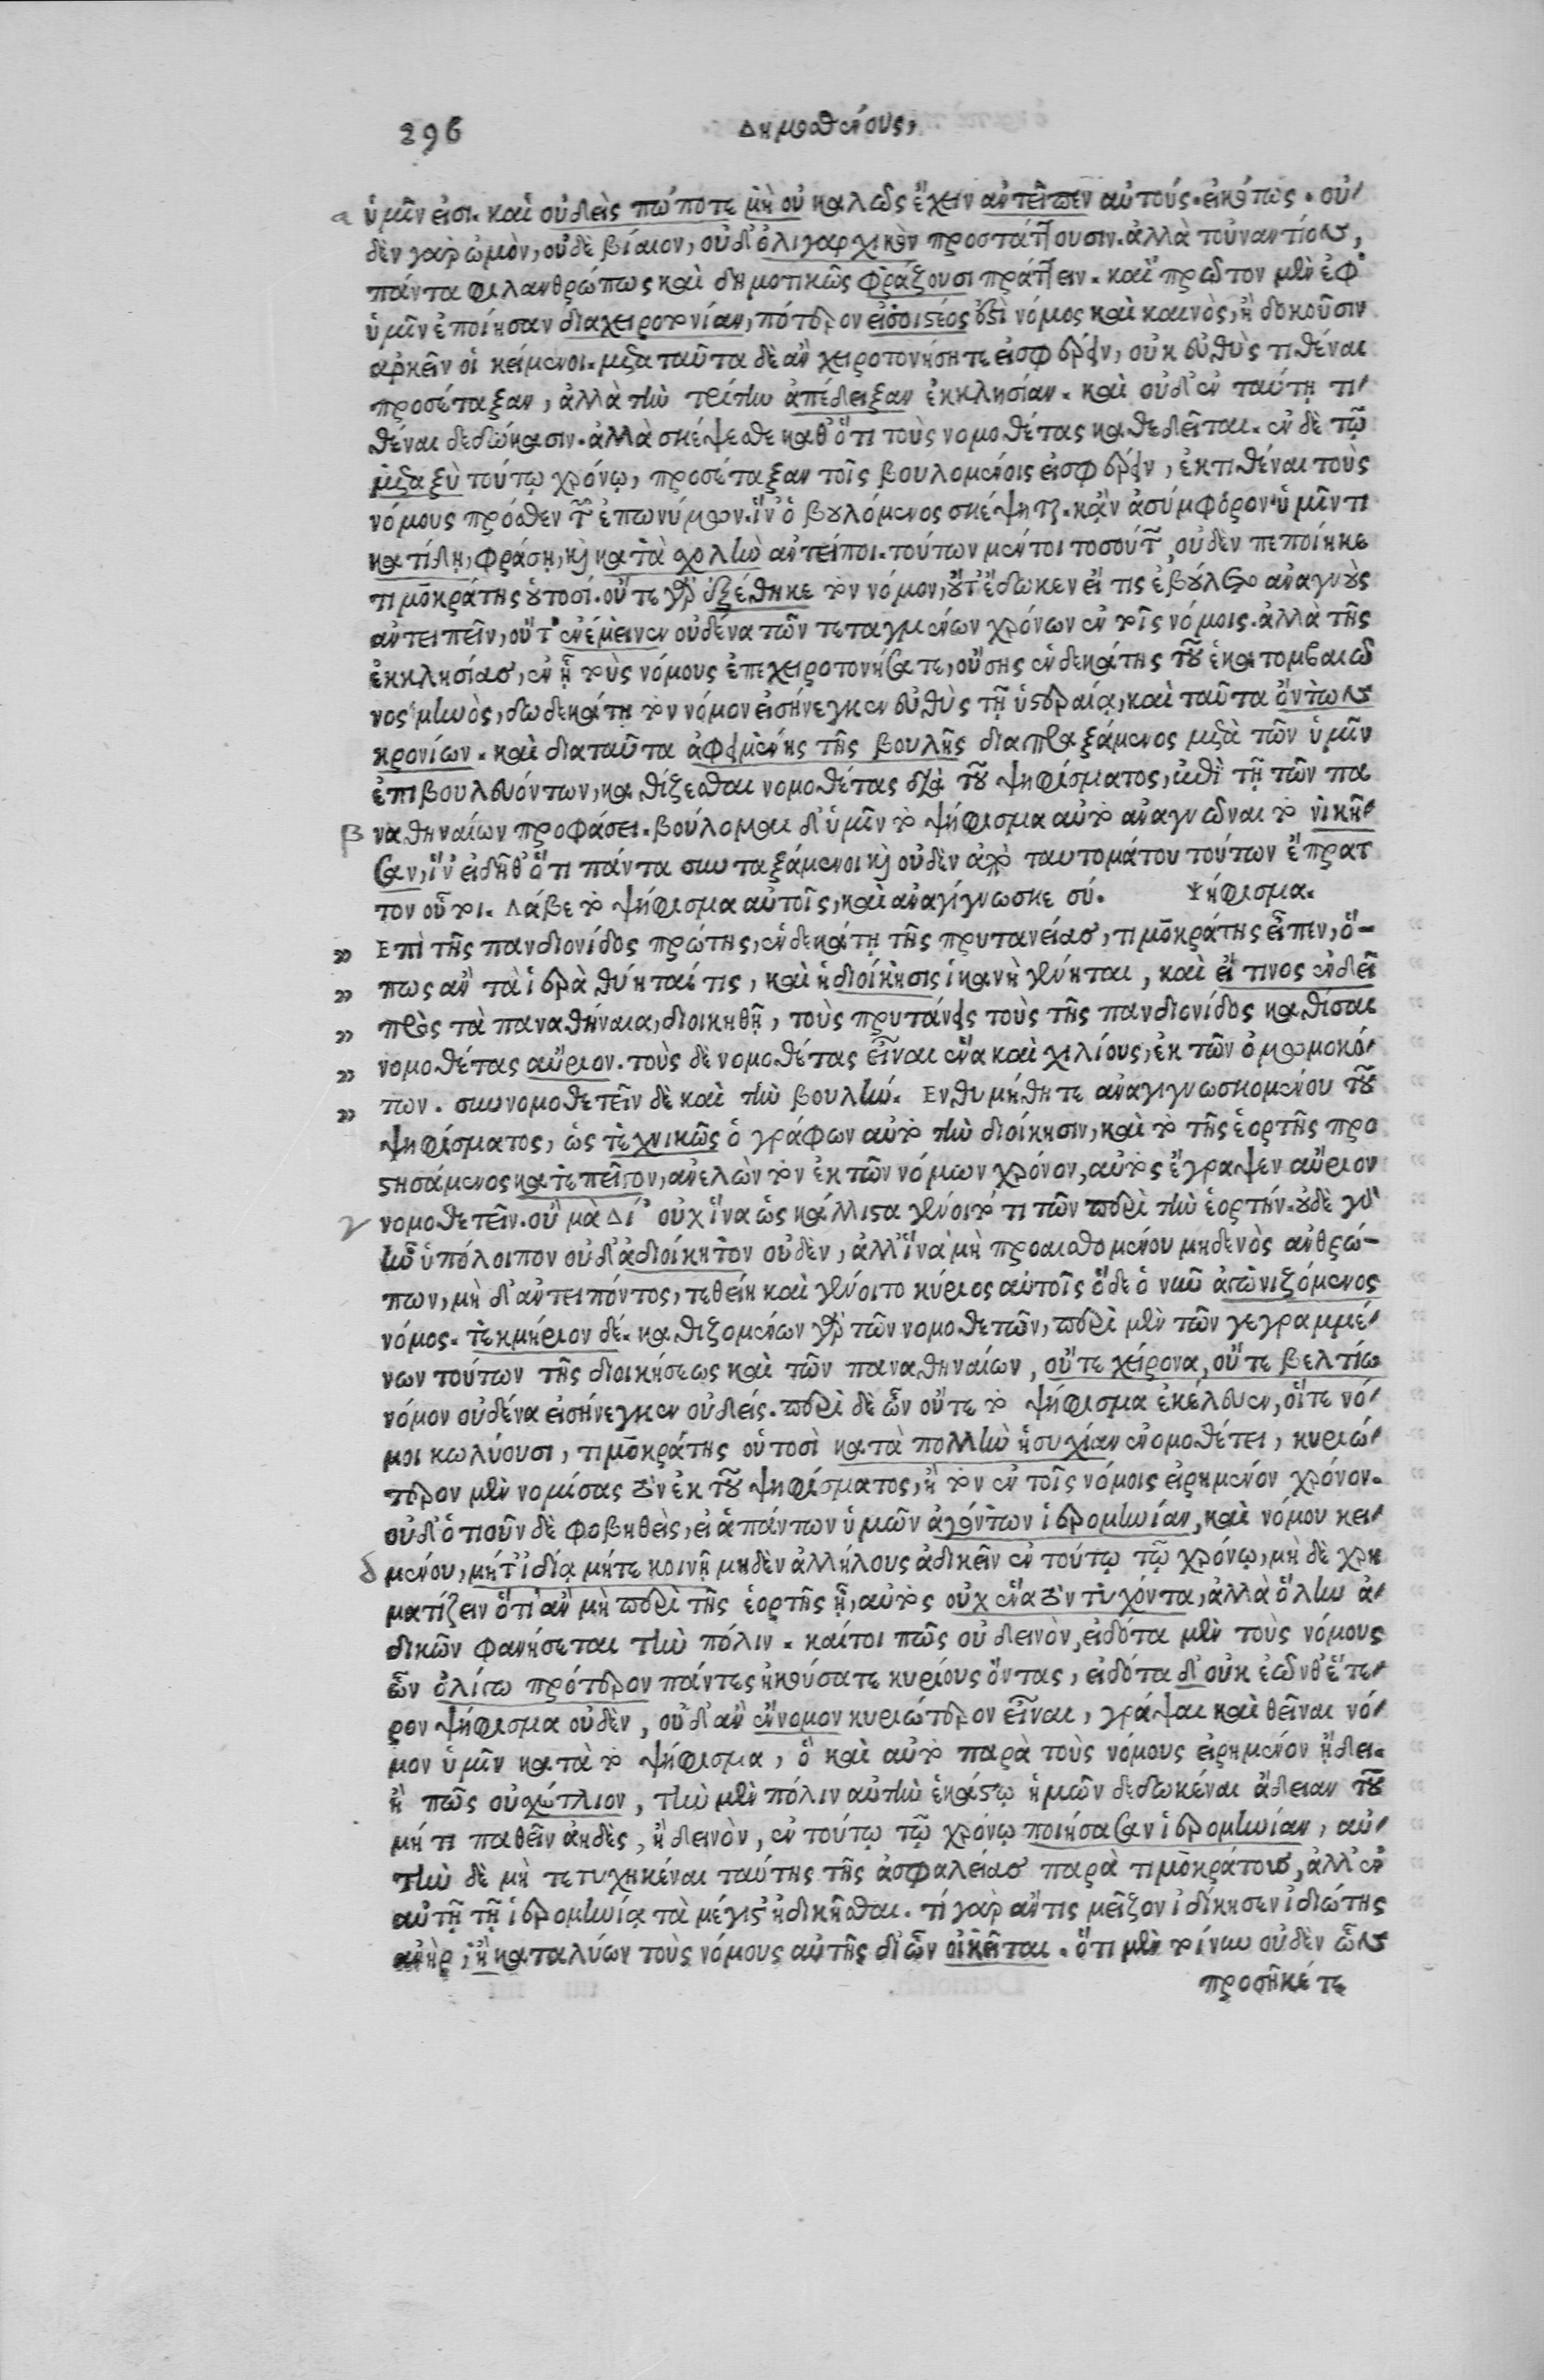 296 Δημοσθένους,
α ὑμῖν εἰσι. καὶ οὐδεὶς πώποτε μὴ οὐ καλῶς ἔχειν ἀντεῖπεν αὐτούς. εἰκότως. οὐ
δὲν γὰρ ὠμὸν, οὐδὲ βίαιον, οὐδ' ὀλιγαρχικὸν προστάττουσιν. ἀλλὰ τοὐναντίον,
πάντα φιλανθρώπως καὶ δημοτικῶς φράζουσι πράττειν. καὶ πρῶτον μὲν ἐφ'
ὑμῖν ἐποίησαν διαχειροτονίαν, πότερον εἰσοιστέος ἐστὶ νόμος καὶ καινὸς, ἢ δοκοῦσιν
ἀρκεῖν οἱ κείμενοι. μετὰ ταῦτα δὲ ἂν χειροτονήσητε εἰσφέρειν, οὐκ εὐθὺς τιθέναι
προσέταξαν, ἀλλὰ τὴν τρίτην ἀπέδειξαν ἐκκλησίαν. καὶ οὐδ' ἐν ταύτῃ τι
θέναι δεδώκασιν. ἀλλὰ σκέψεσθε καθ' ὅτι τοὺς νομοθέτας καθεδεῖται. ἐν δὲ τῷ
μεταξὺ τούτῳ χρόνῳ, προσέταξαν τοῖς βουλομένοις εἰσφέρειν, ἐκτιθέναι τοὺς
νόμους πρόσθεν τῶν ἐπωνύμων. ἵν' ὁ βουλόμενος σκέψηται. κἂν ἀσύμφορον ὑμῖν τι
κατίδῃ, φράσῃ, καὶ κατὰ σχολὴν ἀντείποι. τούτων μέντοι τοσούτων οὐδὲν πεποίηκε
τιμοκράτης οὑτοσί. οὔτε γὰρ ἐξέθηκε τὸν νόμον, οὔτ' ἔδωκεν εἴ τις ἐβούλετο ἀναγνοὺς
ἀντειπεῖν, οὔτ' ἀνέμεινεν οὐδένα τῶν τεταγμένων χρόνων ἐν τοῖς νόμοις. ἀλλὰ τῆς
ἐκκλησίας, ἐν ᾗ τοὺς νόμους ἐπεχειροτονήσατε, οὔσης ἑνδεκάτης τοῦ ἑκατομβαιῶ
νος μηνὸς, δωδεκάτῃ τὸν νόμον εἰσήνεγκεν εὐθὺς τῇ ὑστεραίᾳ, καὶ ταῦτα ὄντων
κρονίων. καὶ διαταῦτα ἀφειμένης τῆς βουλῆς διαπραξάμενος μετὰ τῶν ὑμῖν
ἐπιβουλευόντων, καθίζεσθαι νομοθέτας διὰ τοῦ ψηφίσματος, ἐπὶ τῇ τῶν πα
β ναθηναίων προφάσει. βούλομαι δ' ὑμῖν τὸ ψήφισμα αὐτὸ ἀναγνῶναι τὸ νικῆ
σαν, ἵν' εἰδῆθ' ὅτι πάντα συνταξάμενοι καὶ οὐδὲν ἀπὸ ταυτομάτου τούτων ἔπρατ
τον οὗτοι. Λάβε τὸ ψήφισμα αὐτοῖς, καὶ ἀναγίγνωσκε σύ. Ψήφισμα.
» Ἐπὶ τῆς πανδιονίδος πρώτης, ἑνδεκάτῃ τῆς πρυτανείας, τιμοκράτης εἶπεν, ὅ-
» πως ἂν τὰ ἱερὰ θύηται τις, καὶ ἡ διοίκησις ἱκανὴ γένηται, καὶ εἴ τινος ἐνδεῖ
» πρὸς τὰ παναθήναια, διοικηθῇ, τοὺς πρυτάνεις τοὺς τῆς πανδιονίδος καθίσαι
» νομοθέτας αὔριον. τοὺς δὲ νομοθέτας εἶναι ἕνα καὶ χιλίους, ἐκ τῶν ὀμωμοκό
» των. συννομοθετεῖν δὲ καὶ τὴν βουλήν. Ἐνθυμήθητε ἀναγιγνωσκομένου τοῦ
ψηφίσματος, ὡς τεχνικῶς ὁ γράφων αὐτὸ τὴν διοίκησιν, καὶ τὸ τῆς ἑορτῆς προ
στησάμενος κατεπεῖγον, ἀνελὼν τὸν ἐκ τῶν νόμων χρόνον, αὐτὸς ἔγραψεν αὔριον
γ νομοθετεῖν. οὐ μὰ Δί' οὐχ ἵνα ὡς κάλλιστα γένοιτό τι τῶν περὶ τὴν ἑορτήν. οὐδὲ γὰρ
ἦν ὑπόλοιπον οὐδ' ἀδιοίκητον οὐδὲν, ἀλλ' ἵνα μὴ προαισθομένου μηδενὸς ἀνθρώ-
πων, μὴ δ' ἀντειπόντος, τεθείη καὶ γένοιτο κύριος αὐτοῖς ὅδε ὁ νῦν ἀγωνιζόμενος
νόμος. τεκμήριον δέ. καθιζομένων γὰρ τῶν νομοθετῶν, περὶ μὲν τῶν γεγραμμέ
νων τούτων τῆς διοικήσεως καὶ τῶν παναθηναίων, οὔτε χείρονα, οὔτε βελτίω
νόμον οὐδένα εἰσήνεγκεν οὐδείς. περὶ δὲ ὧν οὔτε τὸ ψήφισμα ἐκέλευεν, οἵτε νό
μοι κωλύουσι, τιμοκράτης οὑτοσὶ κατὰ πολλὴν ἡσυχίαν ἐνομοθέτει, κυριώ
τερον μὲν νομίσας τὸν ἐκ τοῦ ψηφίσματος, ἢ τὸν ἐν τοῖς νόμοις εἰρημένον χρόνον.
οὐδ' ὁτιοῦν δὲ φοβηθεὶς, εἰ ἁπάντων ὑμῶν ἀγόντων ἱερομηνίαν, καὶ νόμου κει
δ μένου, μήτ' ἰδίᾳ μήτε κοινῇ μηδὲν ἀλλήλους ἀδικεῖν ἐν τούτῳ τῷ χρόνῳ, μὴ δὲ χρη
ματίζειν ὅτι ἂν μὴ περὶ τῆς ἑορτῆς ᾖ, αὐτὸς οὐχ ἕνα τὸν τυχόντα, ἀλλὰ ὅλην ἀ
δικῶν φανήσεται τὴν πόλιν. καίτοι πῶς οὐ δεινὸν, εἰδότα μὲν τοὺς νόμους
ὧν ὀλίγω πρότερον πάντες ἠκούσατε κυρίους ὄντας, εἰδότα δ' οὐκ ἐῶνθ' ἕτε
ρον ψήφισμα οὐδὲν, οὐδ' ἂν ἔννομον κυριώτερον εἶναι, γράψαι καὶ θεῖναι νό
μον ὑμῖν κατὰ τὸ ψήφισμα, ὃ καὶ αὐτὸ παρὰ τοὺς νόμους εἰρημένον ᾔδει.
ἢ πῶς οὐ σχέτλιον, τὴν μὲν πόλιν αὐτὴν ἑκάστῳ ἡμῶν δεδωκέναι ἄδειαν τοῦ
μή τι παθεῖν ἀηδὲς, ἢ δεινὸν, ἐν τούτῳ τῷ χρόνῳ ποιήσασαν ἱερομηνίαν, αὐ
τὴν δὲ μὴ τετυχηκέναι ταύτης τῆς ἀσφαλείας παρὰ τιμοκράτους, ἀλλ' ἐν
αὐτῇ τῇ ἱερομηνίᾳ τὰ μέγιστ' ἠδικῆσθαι. τί γὰρ ἄν τις μεῖζον ἠδίκησεν ἰδιώτης
ἀνὴρ, ἢ καταλύων τοὺς νόμους αὐτῆς δι' ὧν οἰκεῖται. ὅτι μὲν τοίνυν οὐδὲν ὧν
προσῆκέ τε